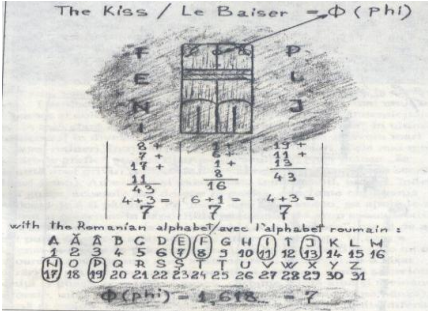 The Kiss / Le Baiser = Φ (phi)
F P
E L
N J
I
8 + 1 + 19 +
7 + 6 + 11 +
17 + 1 + 13
11 8 43
43 16
4+3 = 6+1 = 4+3 =
7 7 7
with the Romanian alphabet/avec l'alphabet roumain :
A Ă Â B C D E F G H I Î J K L M
1 2 3 4 5 6 7 8 9 10 11 12 13 14 15 16
N O P Q R S Ş T Ţ U V W X Y Z
17 18 19 20 21 22 23 24 25 26 27 28 29 30 31
Φ(phi) = 1,618 = 7